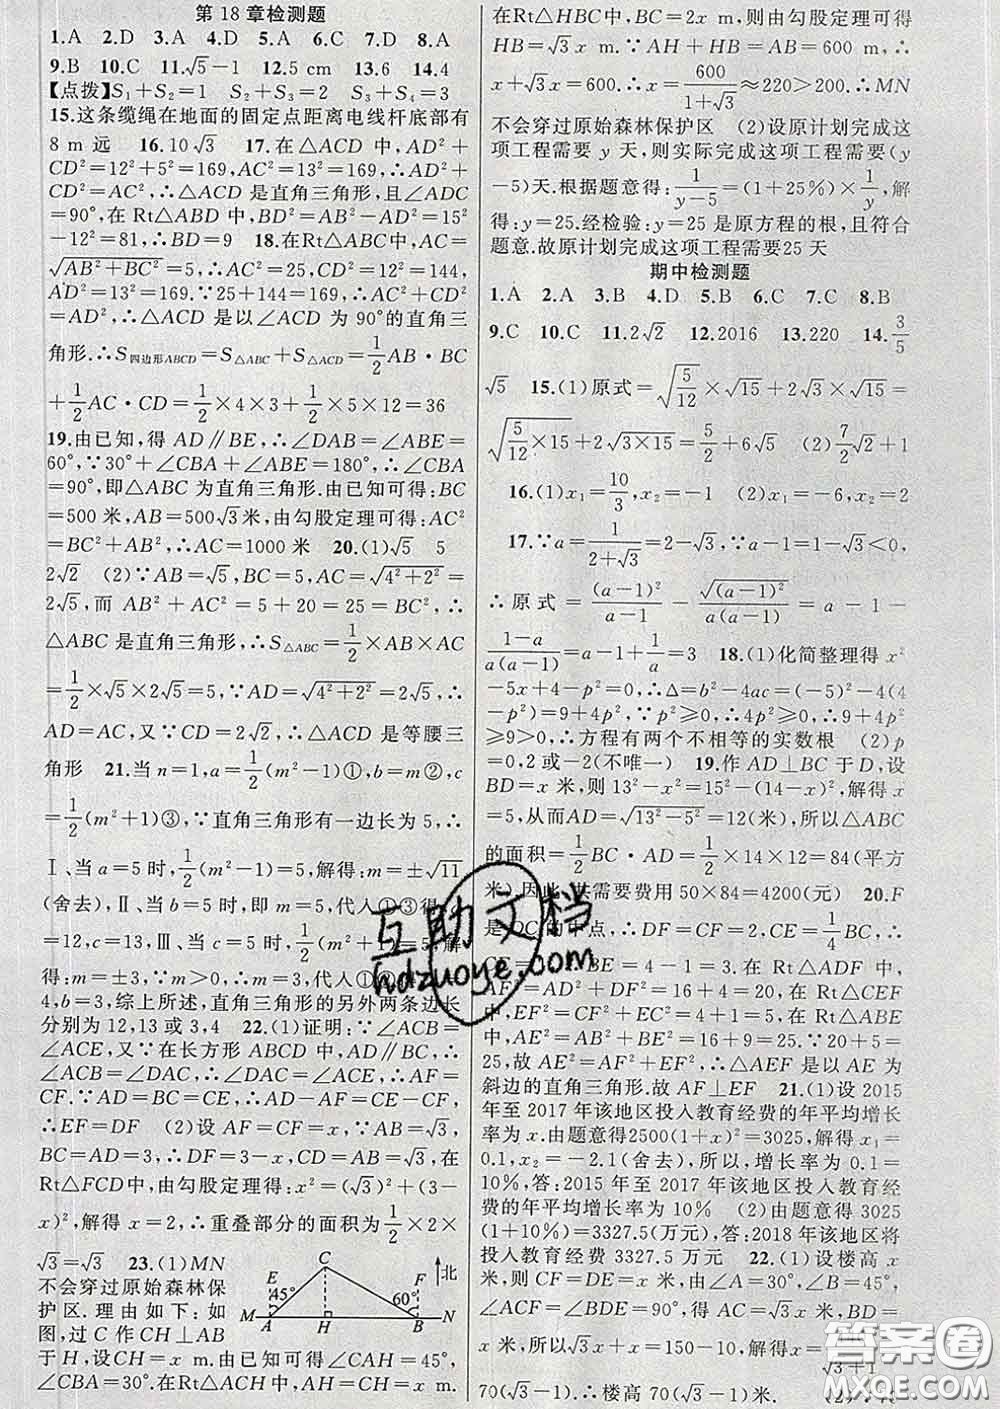 第 18 章检测题
1.A 2.D 3.A 4.D 5.A 6.C 7.D 8.A
9.B 10.C 11.√5−1 12.5 cm 13.6 14.4
【点拨】S₁+S₂=1 S₂+S₃=2 S₃+S₄=3
15.这条缆绳在地面的固定点距离电线杆底部有
8 m 远 16.10√3 17.在△ACD 中,AD²+
CD²=12²+5²=169,AC²=13²=169,∴AD²+
CD²=AC²,∴△ACD 是直角三角形,且∠ADC
=90°,在 Rt△ABD 中,BD²=AB²−AD²=15²
−12²=81,∴BD=9 18.在Rt△ABC中,AC=
√(AB²+BC²)=5,∴AC²=25,CD²=12²=144,
AD²=13²=169.∵25+144=169,∴AC²+CD²
=AD²,∴△ACD 是以∠ACD 为 90°的直角三
角形.∴S四边形ABCD=S△ABC+S△ACD=1/2AB·BC
+1/2AC·CD=1/2×4×3+1/2×5×12=36
19.由已知,得 AD∥BE,∴∠DAB=∠ABE=
60°,∵30°+∠CBA+∠ABE=180°,∴∠CBA
=90°,即△ABC 为直角三角形.由已知可得:BC
=500 米,AB=500√3米,由勾股定理可得:AC²
=BC²+AB²,∴AC=1000 米 20.(1)√5 5
2√2 (2)∵AB=√5,BC=5,AC=√(4²+2²)=
2√5,而 AB²+AC²=5+20=25=BC²,∴
△ABC 是直角三角形,∴S△ABC=1/2×AB×AC
=1/2×√5×2√5=5,∵AD=√(4²+2²)=2√5,∴
AD=AC,又∵CD=2√2,∴△ACD 是等腰三
角形 21.当 n=1,a=1/2(m²−1)①,b=m②,c
=1/2(m²+1)③,∵直角三角形有一边长为 5,∴
Ⅰ、当 a=5 时,1/2(m²−1)=5,解得:m=±√11
(舍去),Ⅱ、当 b=5 时,即 m=5,代人①③得,a
=12,c=13,Ⅲ、当 c=5 时,1/2(m²+1)=5,解
得:m=±3,∵m>0,∴m=3,代人①②得,a=
4,b=3,综上所述,直角三角形的另外两条边长
分别为 12,13 或 3,4 22.(1)证明:∵∠ACB=
∠ACE,又∵在长方形 ABCD 中,AD∥BC,∴
∠ACB=∠DAC,∴∠DAC=∠ACE,∴AF=
CF.∵AD=BC=CE,∴AD−AF=CE−CF,
∴EF=DF (2)设 AF=CF=x,∵AB=√3,
BC=AD=3,∴DF=3−x,CD=AB=√3,在
Rt△FCD中,由勾股定理得:x²=(√3)²+(3−
x)²,解得 x=2,∴重叠部分的面积为1/2×2×
√3=√3 23.(1)MN
不会穿过原始森林保
护区.理由如下:如
图,过 C 作 CH⊥AB
于 H,设CH=x m.由已知可得∠CAH=45°,
∠CBH=60°.在Rt△ACH中,AH=CH=x m.
E C F 北
45° 60°
M A H B N
在Rt△HBC中,BC=2x m,则由勾股定理可得
HB=√3x m.∵AH+HB=AB=600 m,∴
x+√3x=600.∴x=600/(1+√3)≈220>200.∴MN
不会穿过原始森林保护区 (2)设原计划完成这
项工程需要 y 天,则实际完成这项工程需要(y
−5)天.根据题意得:1/(y−5)=(1+25%)×1/y,解
得:y=25.经检验:y=25 是原方程的根,且符合
题意.故原计划完成这项工程需要25 天
期中检测题
1.A 2.A 3.B 4.D 5.B 6.C 7.C 8.B
9.C 10.C 11.2√2 12.2016 13.220 14.3/5
√5 15.(1)原式=√(5/12)×√15+2√3×√15=
√(5/12×15)+2√(3×15)=5/2+6√5 (2)7/2√2+1
16.(1)x₁=10/3,x₂=−1 (2)x₁=−6,x₂=2
17.∵a=1/(2+√3)=2−√3,∵a−1=1−√3<0,
∴原式=(a−1)²/(a−1)−√((a−1)²)/(a(a−1))=a−1−
(1−a)/(a(a−1))=a−1+1/a=3 18.(1)化简整理得 x²
−5x+4−p²=0,∴Δ=b²−4ac=(−5)²−4(4
−p²)=9+4p²,∵p²≥0,∴4p²≥0,∴9+4p²
≥9>0,∴方程有两个不相等的实数根 (2)p
=0,2 或−2(不唯一) 19.作 AD⊥BC 于 D,设
BD=x 米,则 13²−x²=15²−(14−x)².解得 x
=5,从而AD=√(13²−5²)=12(米),所以△ABC
的面积=1/2BC·AD=1/2×14×12=84(平方
米)因此,共需要费用 50×84=4200(元) 20.F
是 DC 的中点,∴DF=CF=2,CE=1/4BC,∴
BE=4−1=3.在 Rt△ADF 中,
AF²=AD²+DF²=16+4=20,在 Rt△CEF
中,EF²=CF²+EC²=4+1=5,在 Rt△ABE
中,AE²=AB²+BE²=16+9=25.∵20+5=
25,故 AE²=AF²+EF²,∴△AEF 是以 AE 为
斜边的直角三角形.故 AF⊥EF 21.(1)设 2015
年至 2017 年该地区投入教育经费的年平均增长
率为 x.由题意得2500(1+x)²=3025,解得 x₁=
0.1,x₂=−2.1(舍去),所以,增长率为 0.1=
10%,答:2015 年至 2017 年该地区投入教育经
费的年平均增长率为 10% (2)由题意得 3025
(1+10%)=3327.5(万元),答:2018 年该地区将
投入教育经费 3327.5 万元 22.(1)设楼高 x
米,则 CF=DE=x 米,由∠A=30°,∠B=45°,
∠ACF=∠BDE=90°,得 AC=√3x米,BD=
x 米,所以√3x+x=150−10,解得 x=140/(√3+1)=
70(√3−1).∴楼高 70(√3−1)米.
互助文档
hdzuoye.com
答案圈
MXQE.COM